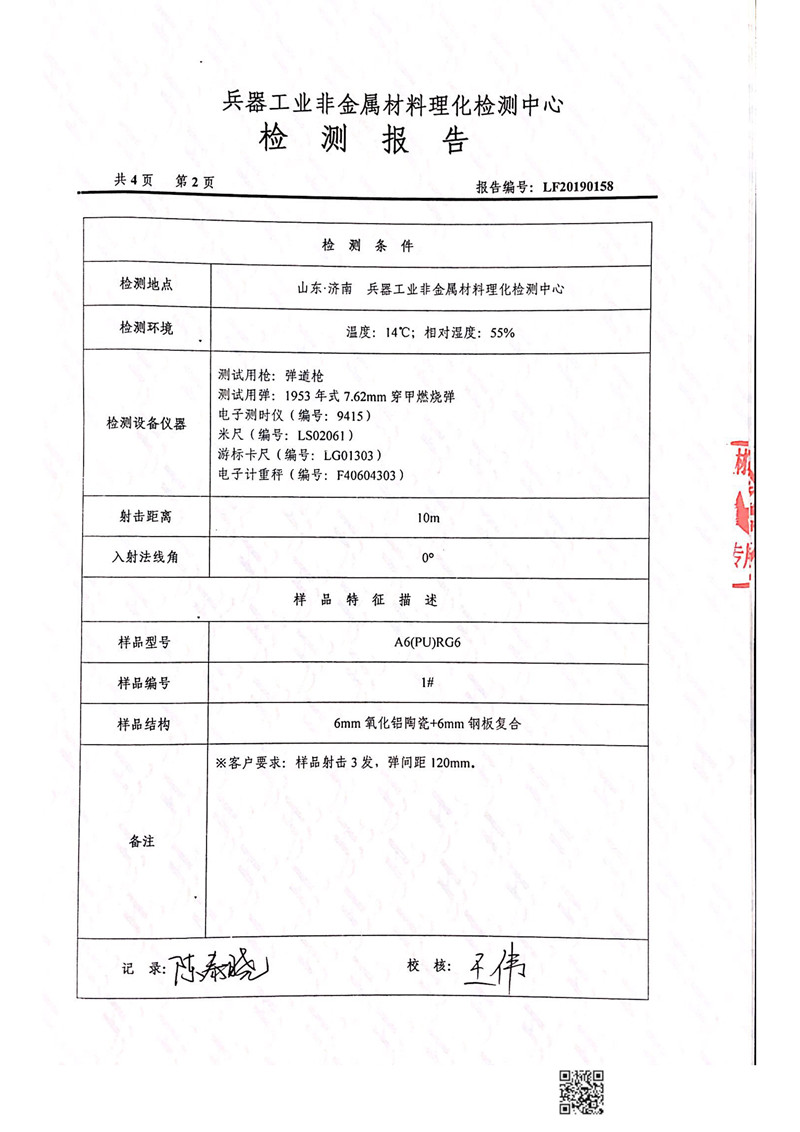 兵器工业非金属材料理化检测中心
检 测 报 告
共 4 页 第 2 页 报告编号: LF20190158
检 测 条 件
检测地点 山东·济南 兵器工业非金属材料理化检测中心
检测环境 温度: 14℃; 相对湿度: 55%
检测设备仪器
测试用枪: 弹道枪
测试用弹: 1953 年式 7.62mm 穿甲燃烧弹
电子测时仪 (编号: 9415)
米尺 (编号: LS02061)
游标卡尺 (编号: LG01303)
电子计重秤 (编号: F40604303)
射击距离 10m
入射法线角 0°
样 品 特 征 描 述
样品型号 A6(PU)RG6
样品编号 1#
样品结构 6mm 氧化铝陶瓷+6mm 钢板复合
备注 ※客户要求: 样品射击 3 发, 弹间距 120mm。
记 录: 陈泰晓 校 核: 王伟
材
专用